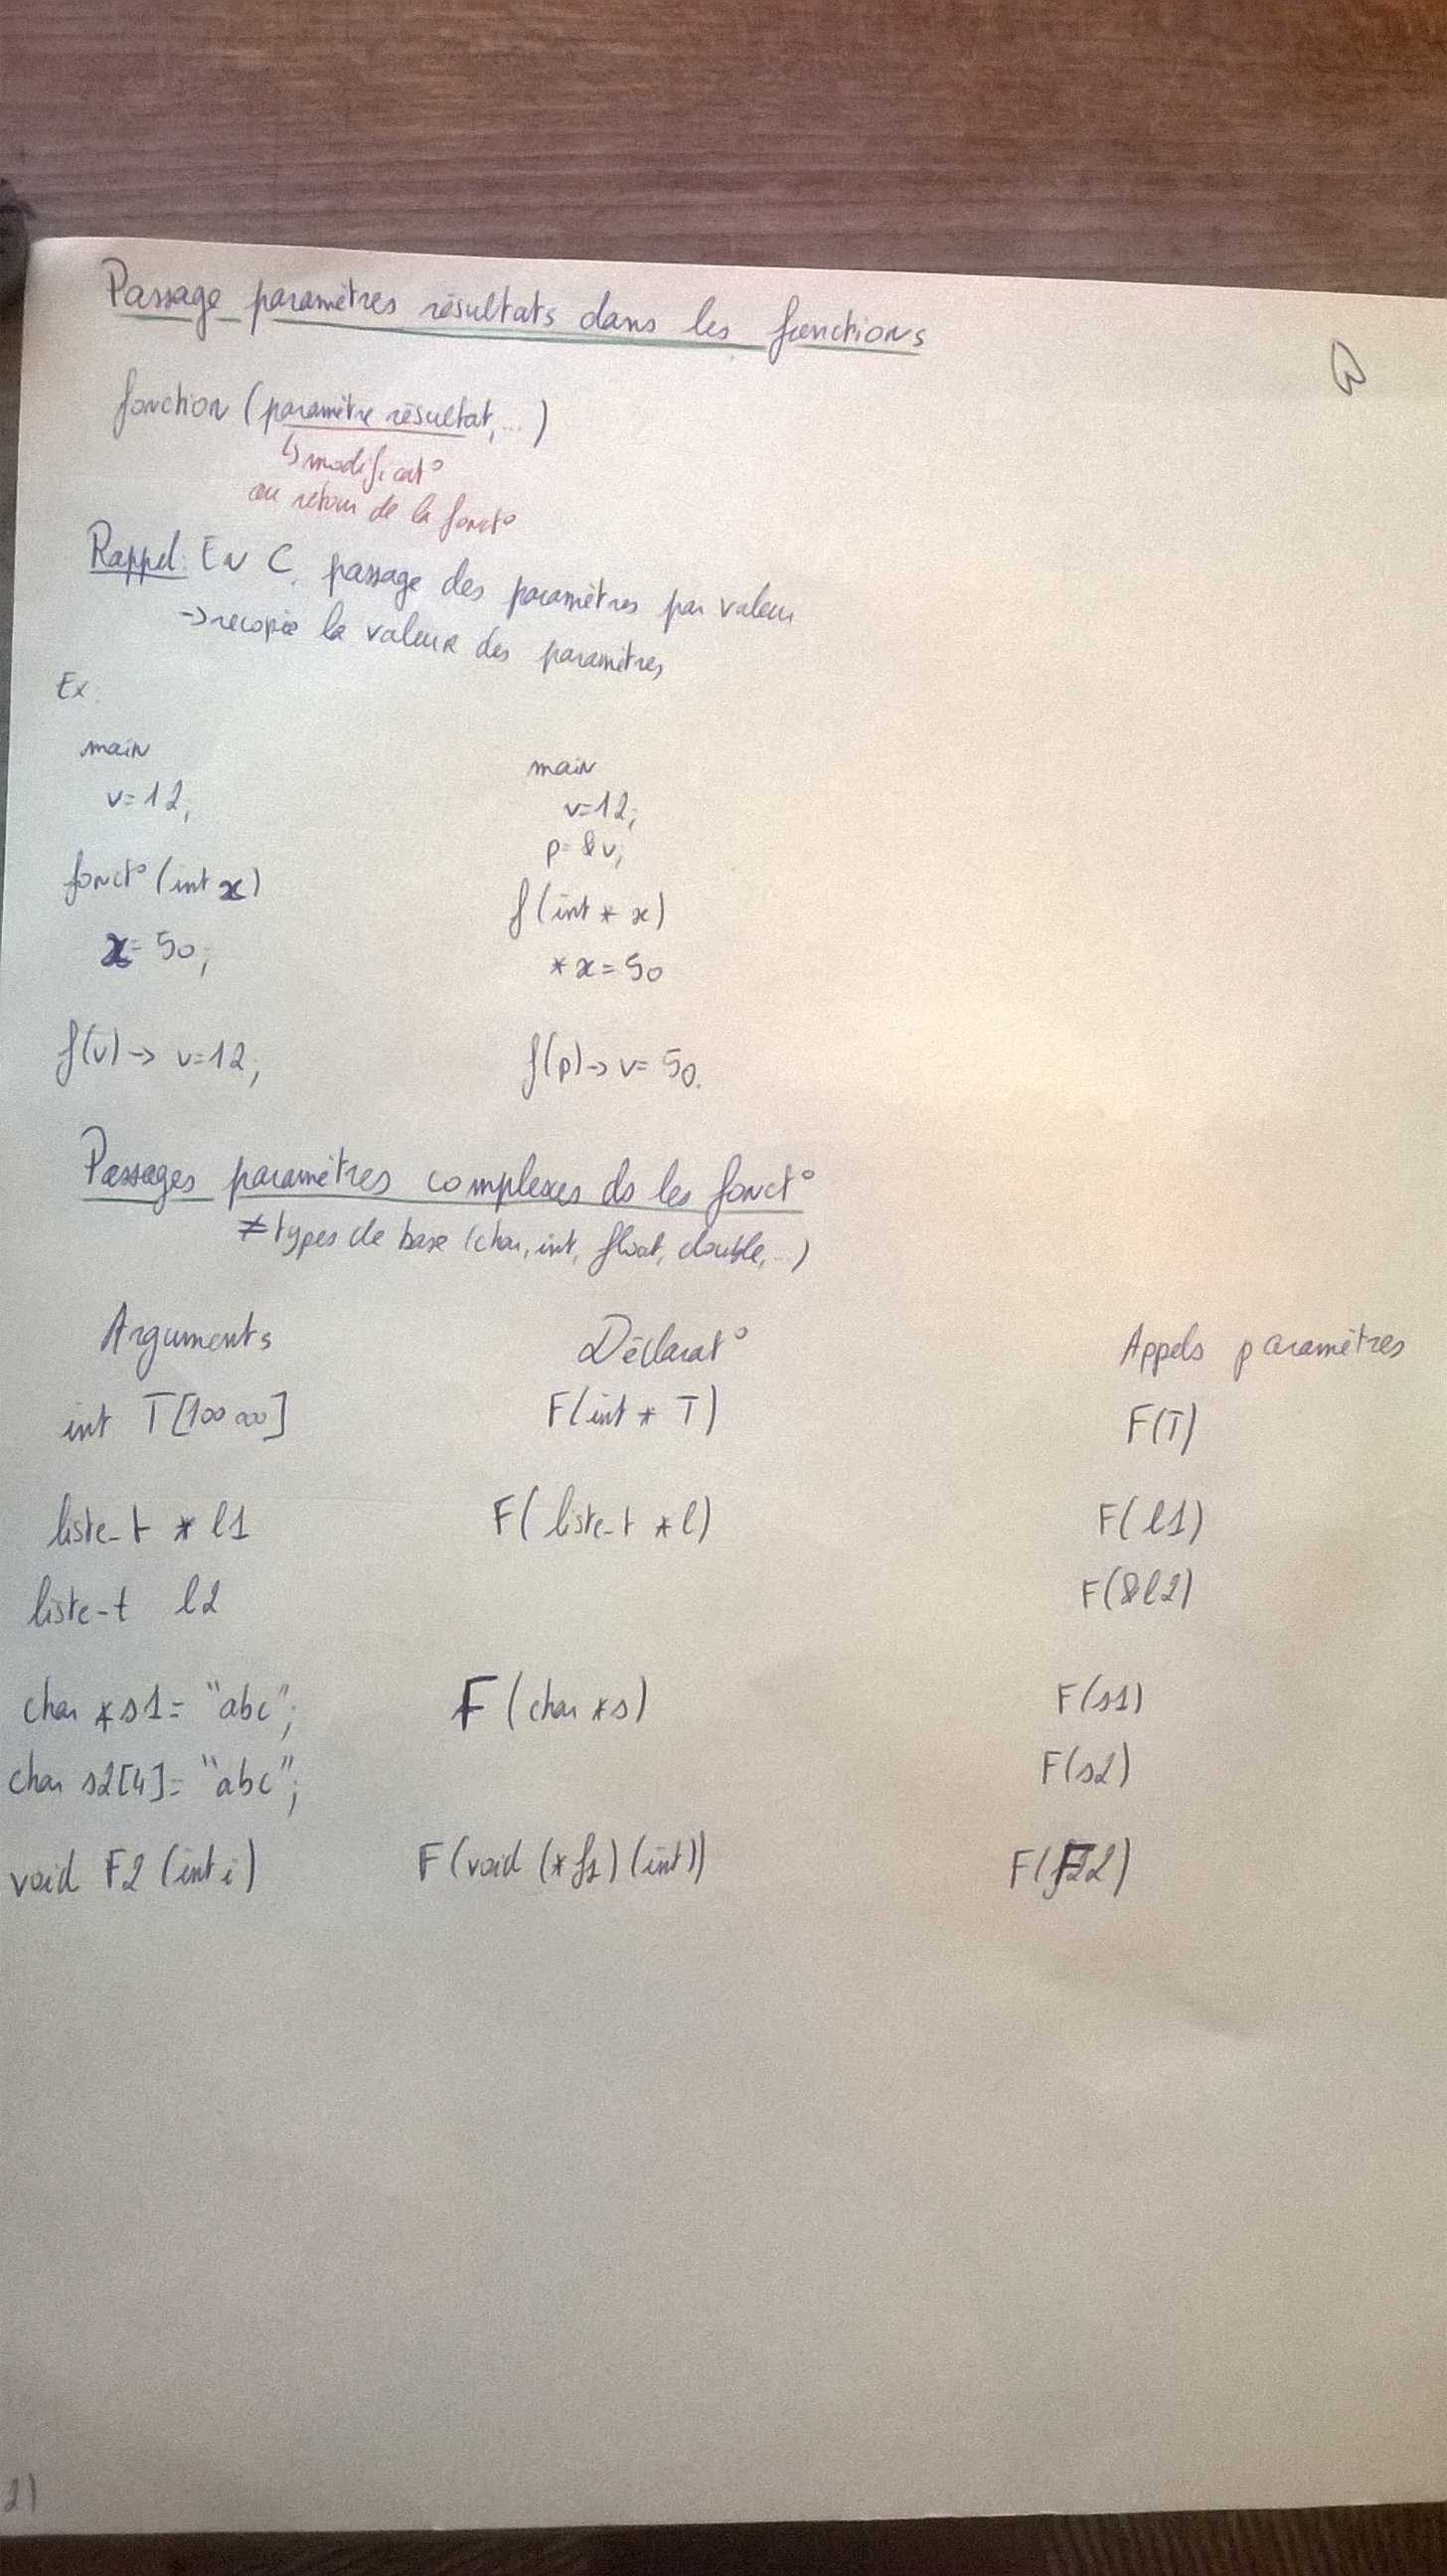 Passage paramètres résultats dans les fonctions
3
fonction (paramètre résultat, ...)
↳ modificat°
au retour de la fonct°
Rappel: En C, passage des paramètres par valeur
-> recopie la valeur des paramètres
Ex.
main
v=12;
fonct° (int x)
x= 50;
f(v) -> v=12;
main
v=12;
p= &v;
f(int * x)
*x=50
f(p) -> v= 50.
Passages paramètres complexes ds les fonct°
≠ types de base (char, int, float, double, ...)
Arguments Déclarat° Appels paramètres
int T[10000] F(int * T) F(T)
liste_t * l1 F( liste_t *l) F( l1)
liste_t l2 F(&l2)
char *s1= "abc"; F (char *s) F(s1)
char s2[4]= "abc"; F(s2)
void F2 (int i) F(void (*f1) (int)) F(F2)
2)